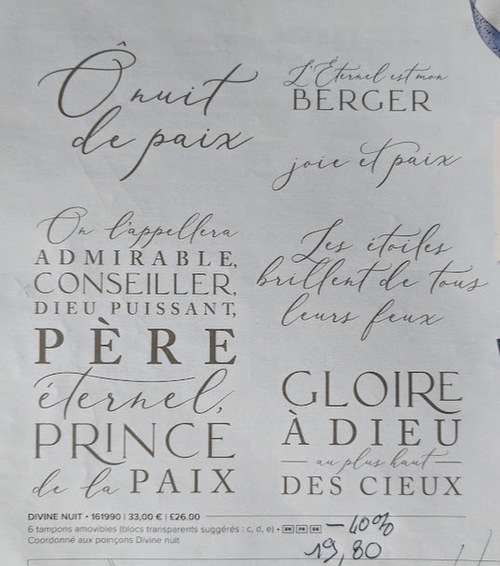 Ô nuit
de paix
L'Éternel est mon
BERGER
joie et paix
On l'appellera
ADMIRABLE,
CONSEILLER,
DIEU PUISSANT,
PÈRE
éternel,
PRINCE
de la PAIX
Les étoiles
brillent de tous
leurs feux
GLOIRE
À DIEU
au plus haut
DES CIEUX
DIVINE NUIT • 161990 | 33,00 € | £26.00
6 tampons amovibles (blocs transparents suggérés : c, d, e) •
Coordonné aux poinçons Divine nuit
-40%
19,80